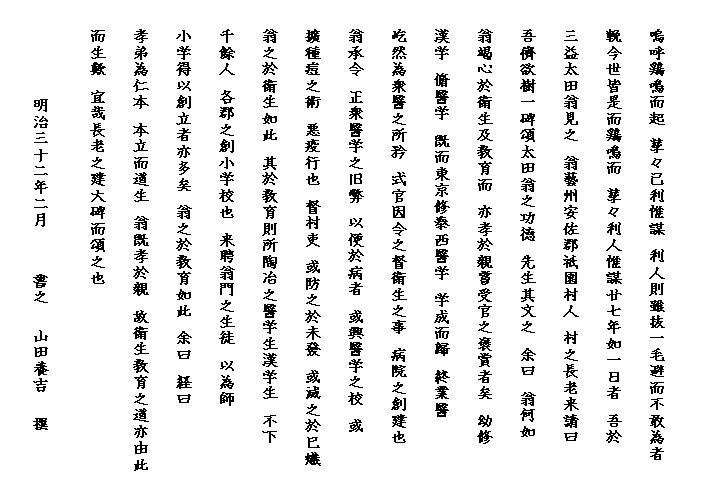 嗚呼鶏鳴而起 孳々已利惟謀 利人則雖抜一毛避而不敢為者
輓今世皆是而鶏鳴而 孳々利人惟謀廿七年如一日者 吾於
三益太田翁見之 翁藝州安佐郡祇園村人 村之長老来請曰
吾儕欲樹一碑頌太田翁之功徳 先生其文之 余曰 翁何如
翁竭心於衛生及教育而 亦孝於親嘗受官之褒賞者矣 幼修
漢学 脩醫学 既而東京修泰西醫学 学成而歸 終業醫
屹然為衆醫之所矜 式官因令之督衛生之事 病院之創建也
翁承令 正衆醫学之旧弊 以便於病者 或興醫学之校 或
擴種痘之術 悪疫行也 督村吏 或防之於未發 或滅之於已熾
翁之於衛生如此 其於教育則所陶冶之醫学生漢学生 不下
千餘人 各郡之創小学校也 来聘翁門之生徒 以為師
小学得以創立者亦多矣 翁之於教育如此 余曰 経曰
孝弟為仁本 本立而道生 翁既孝於親 故衛生教育之道亦由此
而生歟 宜哉長老之建大碑而頌之也
明治三十二年二月 書之 山田養吉 撰